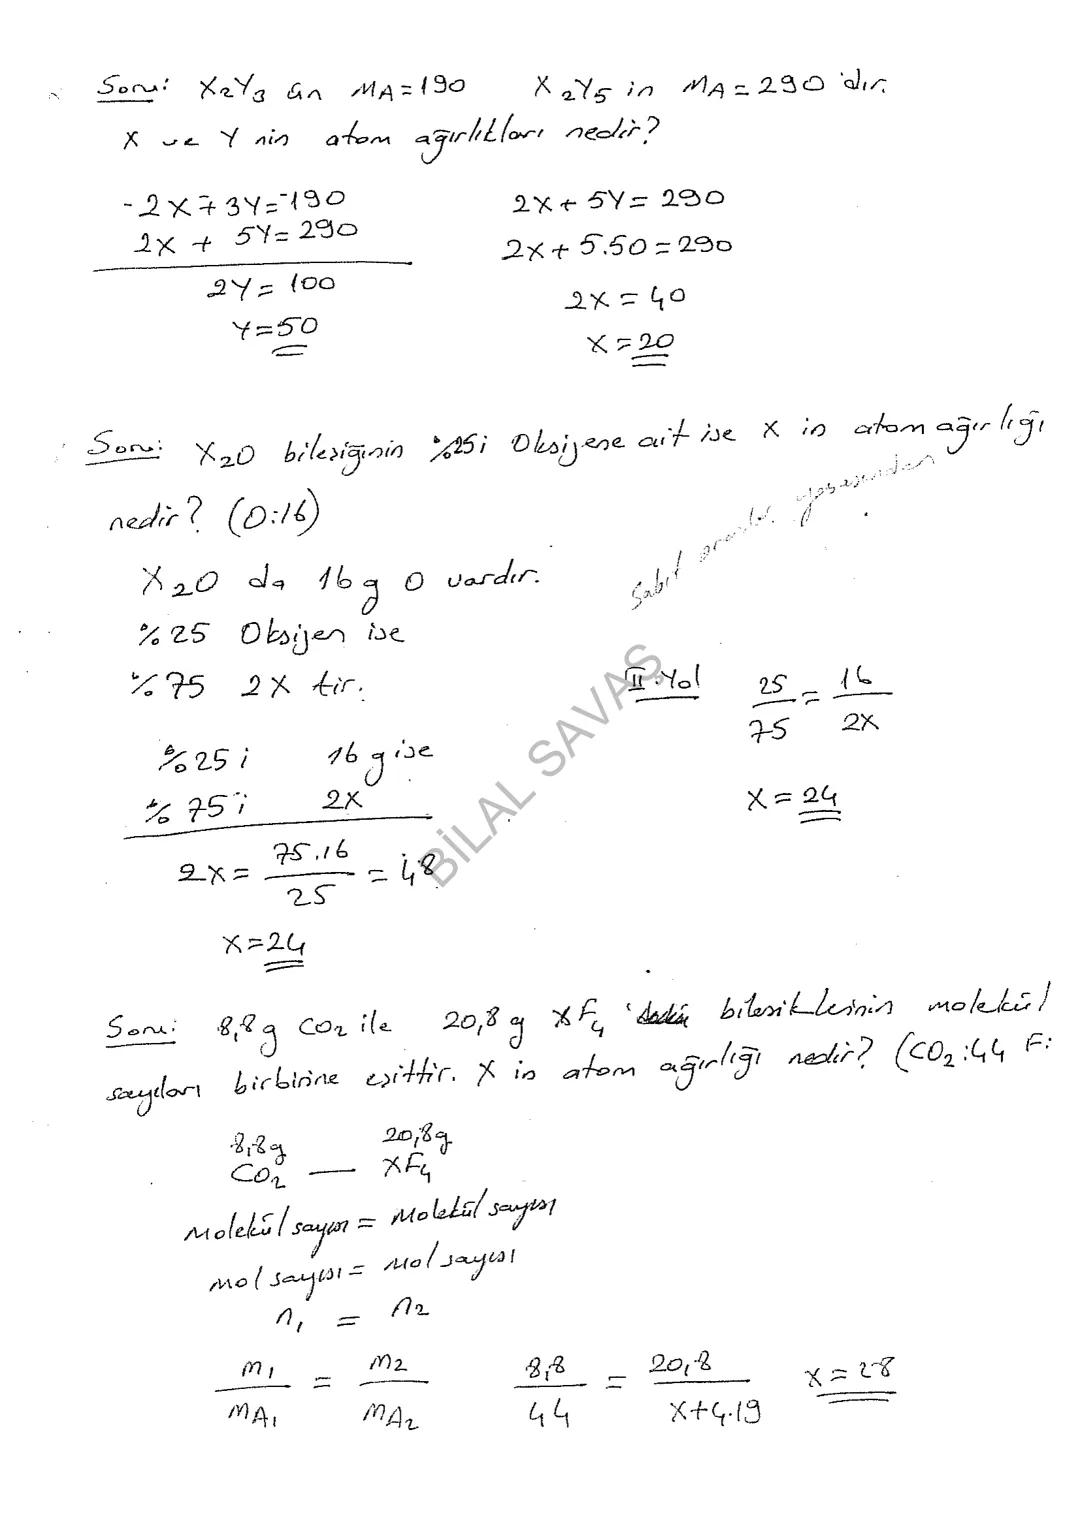 Soru: X₂Y₃ ün MA=190 X₂Y₅ in MA=290 'dır.
X ve Y nin atom ağırlıkları nedir?
-2X∓3Y=⁻190 2X+5Y=290
2X + 5Y=290 2X+5.50=290
2Y=100 2X=40
Y=50 X=20
Soru: X₂O bileşiğinin %25i Oksijene ait ise X in atom ağırlığı
nedir? (O:16)
Sabit oranlar yasasından
X₂O da 16g O vardır.
%25 Oksijen ise
%75 2X tir.
II.Yol 25/75 = 16/2X
%25i 16 g ise
%75i 2X
X=24
2X = 75.16/25 = 48
X=24
Soru: 8,8g CO₂ ile 20,8g XF₄ bileşiklerinin molekül
sayıları birbirine eşittir. X in atom ağırlığı nedir? (CO₂:44 F:
8,8g 20,8g
CO₂ — XF₄
Molekül sayısı = Molekül sayısı
mol sayısı = mol sayısı
n₁ = n₂
m₁/MA₁ = m₂/MA₂ 8,8/44 = 20,8/X+4.19 X=28
BİLAL SAVAŞ